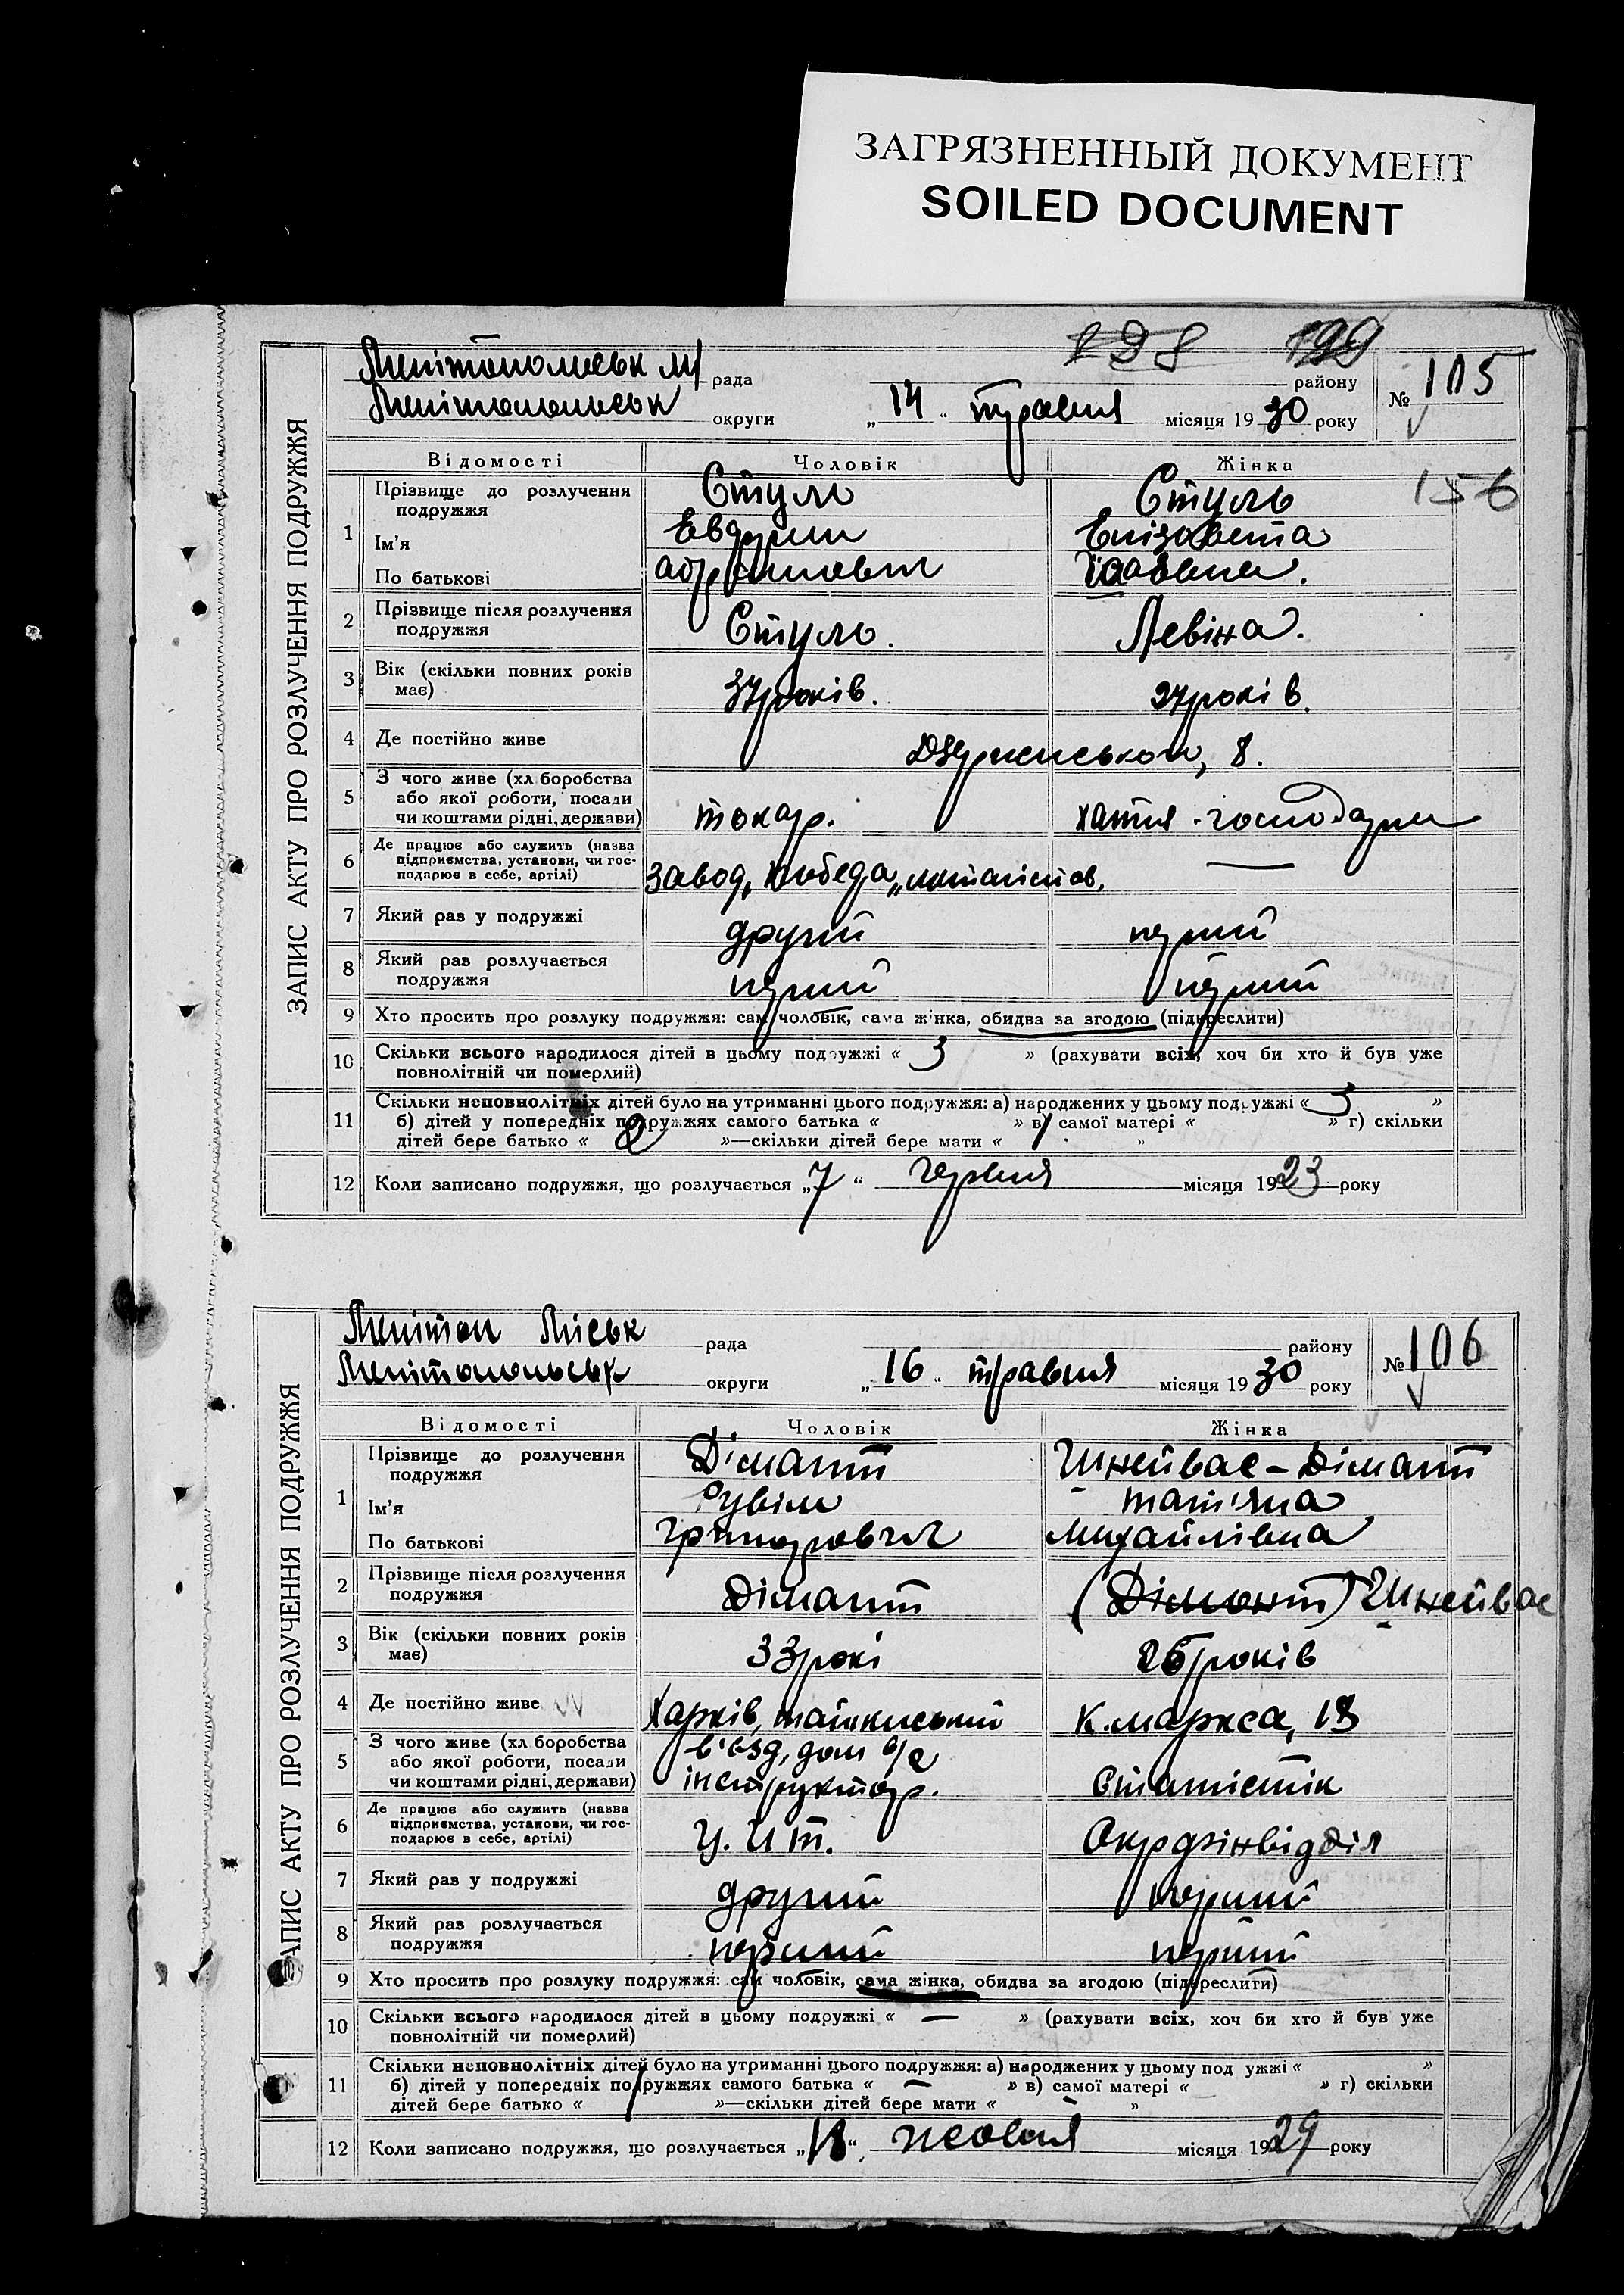 ЗАГРЯЗНЕННЫЙ ДОКУМЕНТ
SOILED DOCUMENT
198 199
ЗАПИС АКТУ ПРО РОЗЛУЧЕННЯ ПОДРУЖЖЯ
Мелітопольськ м/ рада району
Мелітопольськ округи „14“ травня місяця 1930 року
№ 105
Відомості Чоловік Жінка
156
1 Прізвище до розлучення подружжя Стуль Стуль
Ім'я Елізавета
По батькові
2 Прізвище після розлучення подружжя Стуль. Левіна.
3 Вік (скільки повних років має) 37 років. 27 років.
4 Де постійно живе 8.
5 З чого живе (хл боробства або якої роботи, посади чи коштами рідні, держави) токар. хатня-господарка
6 Де працює або служить (назва підприємства, установи, чи господарює в себе, артілі) завод „Победа —
7 Який раз у подружжі другий перший
8 Який раз розлучається подружжя перший перший
9 Хто просить про розлуку подружжя: сам чоловік, сама жінка, обидва за згодою (підкреслити)
10 Скільки всього народилося дітей в цьому подружжі « 3 » (рахувати всіх, хоч би хто й був уже
повнолітній чи померлий)
11 Скільки неповнолітніх дітей було на утриманні цього подружжя: а) народжених у цьому подружжі « 3 »
б) дітей у попередніх подружжях самого батька « » в) самої матері « » г) скільки
дітей бере батько « 2 »—скільки дітей бере мати « 1 »
12 Коли записано подружжя, що розлучається „7“ червня місяця 1923 року
ЗАПИС АКТУ ПРО РОЗЛУЧЕННЯ ПОДРУЖЖЯ
Мелітоп Міськ рада району
Мелітопольськ округи „16“ травня місяця 1930 року
№ 106
Відомості Чоловік Жінка
1 Прізвище до розлучення подружжя Дімант Шнейвас-Дімант
Ім'я Рувім Тат'яна
По батькові Грігорович Михайлівна
2 Прізвище після розлучення подружжя Дімант (Дімант) Шнейвас
3 Вік (скільки повних років має) 33 рокі 26 років
4 Де постійно живе Харків, К. Маркса, 13
в'їзд, дом 6/2
5 З чого живе (хл боробства або якої роботи, посади чи коштами рідні, держави) інструктор. Статістік
6 Де працює або служить (назва підприємства, установи, чи господарює в себе, артілі) Окрфінвідділ
7 Який раз у подружжі другий перший
8 Який раз розлучається подружжя перший перший
9 Хто просить про розлуку подружжя: сам чоловік, сама жінка, обидва за згодою (підкреслити)
10 Скільки всього народилося дітей в цьому подружжі « — » (рахувати всіх, хоч би хто й був уже
повнолітній чи померлий)
11 Скільки неповнолітніх дітей було на утриманні цього подружжя: а) народжених у цьому под ужжі « »
б) дітей у попередніх подружжях самого батька « — » в) самої матері « » г) скільки
дітей бере батько « »—скільки дітей бере мати « »
12 Коли записано подружжя, що розлучається жовтня місяця 1929 року